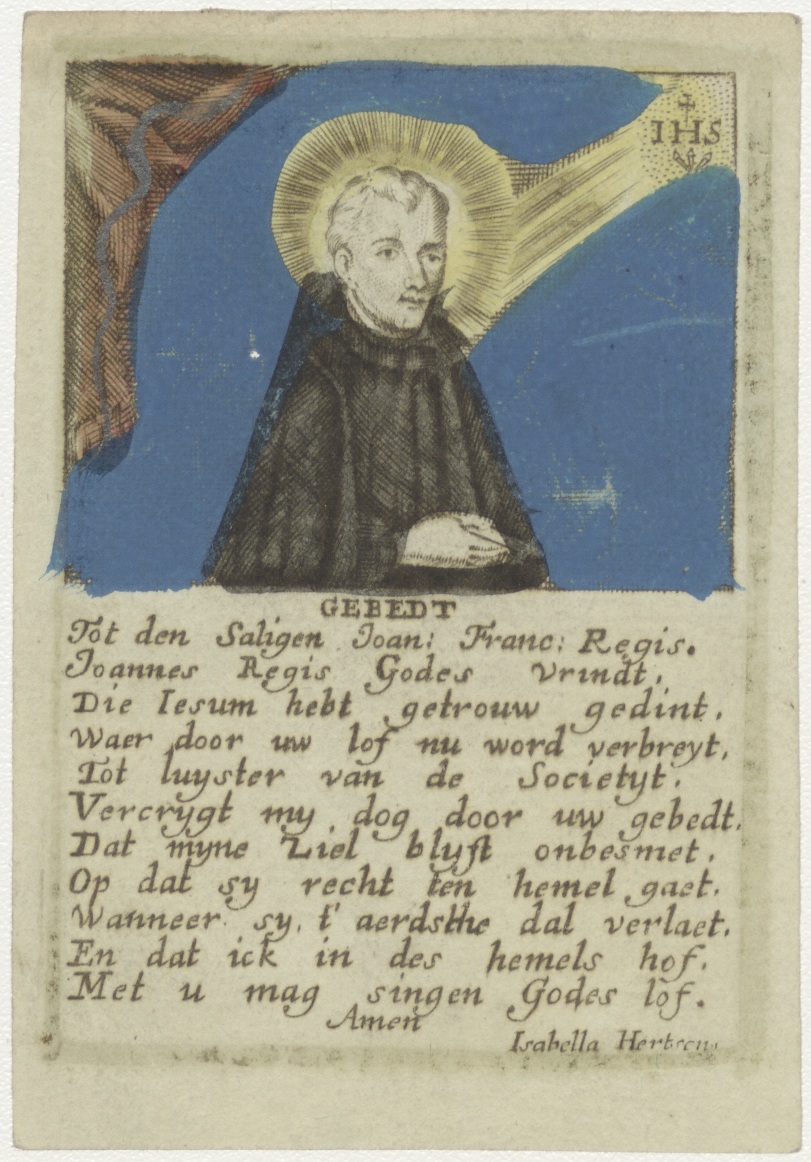 IHS
GEBEDT
Tot den Saligen Ioan: Franc: Regis.
Ioannes Regis Godes vrindt,
Die Iesum hebt getrouw gedint,
Waer door uw lof nu word verbreyt,
Tot luyster van de Societyt.
Vercrygt my dog door uw gebedt,
Dat myne Ziel blyft onbesmet,
Op dat sy recht ten hemel gaet,
Wanneer sy, t' aerdsthe dal verlaet,
En dat ick in des hemels hof,
Met u mag singen Godes lof.
Amen
Isabella